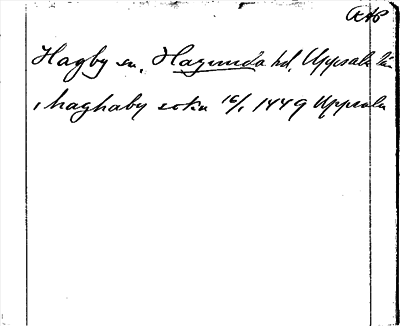 RAP
Hagby sn, Hagunda hd, Uppsala län
i haghaby sokn 16/1 1449 Uppsala